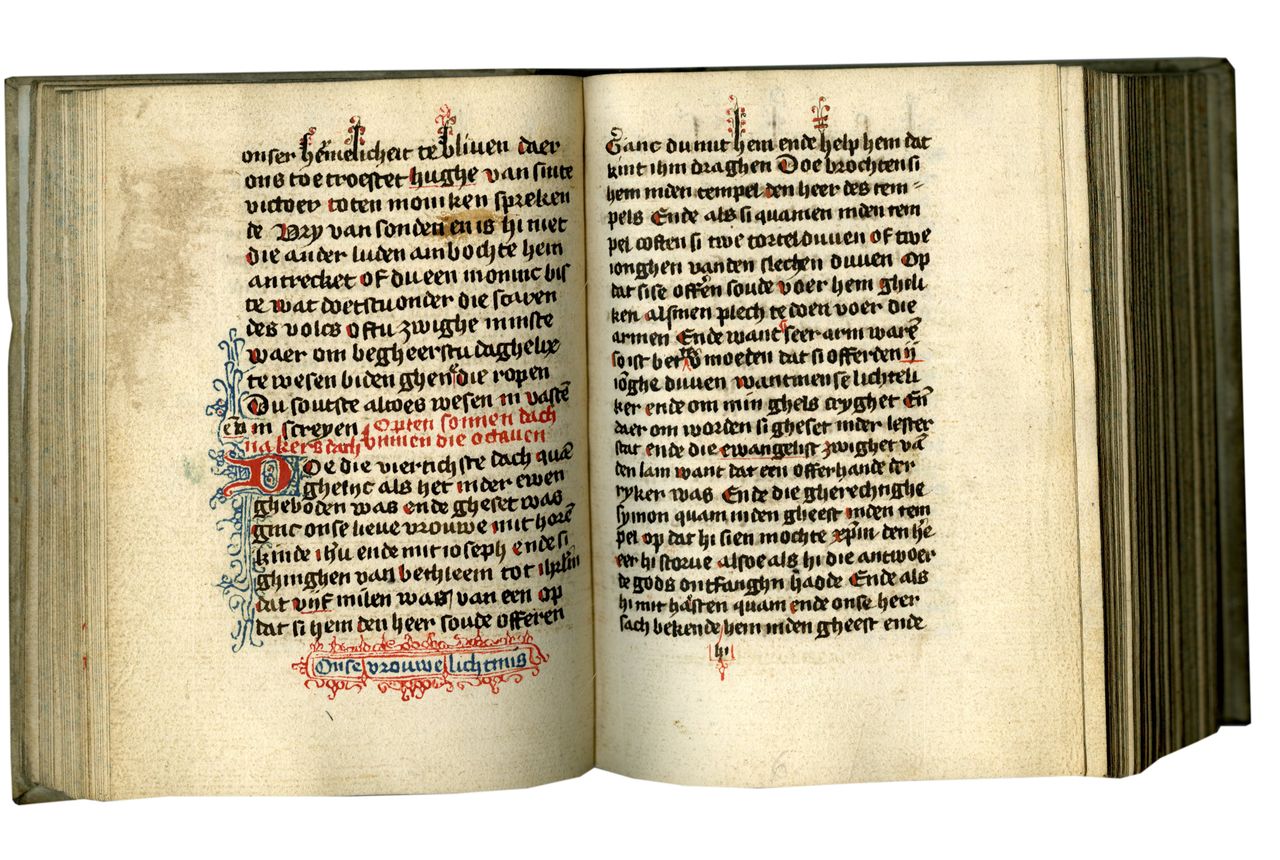 onser hemelicheit te bliven daer
ons toe troestet hughe van sinte
victoer toten moniken spreken
de Vry van sonden en is hi niet
die ander luden ambochte hem
antrecket of du een moninc bis
te wat doetstu onder die scaren
des volcs oftu zwighe minste
waer om begheerstu daghelix
te wesen biden ghenē die ropen
Du soutste altoes wesen in vastē
eñ in screyen Opten sonnen dach
na kersdach binnen die octauen
Doe die viertichste dach quā
gheliyc als het inder ewen
gheboden was ende gheset was
ginc onse lieve vrouwe mit horē
kinde ihu ende mit ioseph ende si
ghinghen van bethleem tot ihrlm
dat viif milen was van een op
dat si hem den heer soude offeren
Onse vrouwe lichtmis
Ganc du mit hem ende help hem dat
kint ihm draghen Doe brochten si
hem inden tempel den heer des tem
pels Ende als si quamen inden tem
pel coften si twe tortelduven of twe
ionghen vanden slechen duven Op
dat sise offrēn soude voer hem gheli
ken alsmen plech te doen voer die
armen Ende want seer arm warē
so ist ver moeden dat si offerden ii
iōghe duven want men se lichteli
ker ende om min ghels cryghet Eñ
daer om worden si gheset inder lester
stat ende die ewangelist zwighet vā
den lam want dat een offerhande der
ryker was Ende die gherechtighe
symon quam inden gheest inden tem
pel op dat hi sien mochte xpm den he
eer hi storue alsoe als hi die antwoer
de gods ontfanghn hadde Ende als
hi mit hasten quam ende onse heer
sach bekende hem inden gheest ende
hi